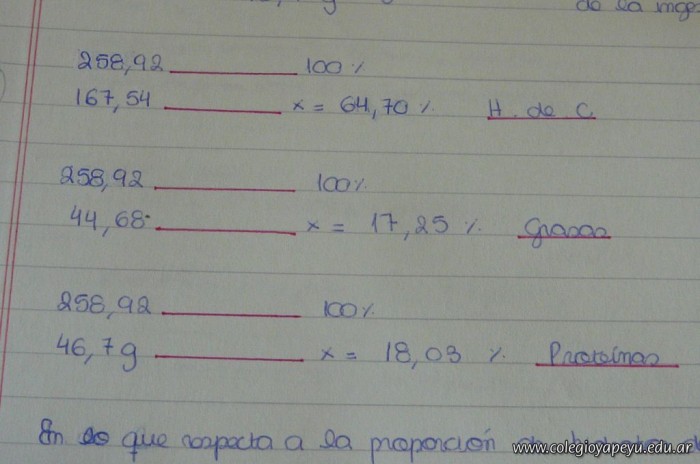 de la inge
258,92 100%
167,54 x = 64,70 % H. de C.
258,92 100%
44,68 x = 17,25 % Grasas
258,92 100%
46,7g x = 18,03 % Proteínas
En lo que respecta a la proporción de hidratos d
www.colegioyapeyu.edu.ar